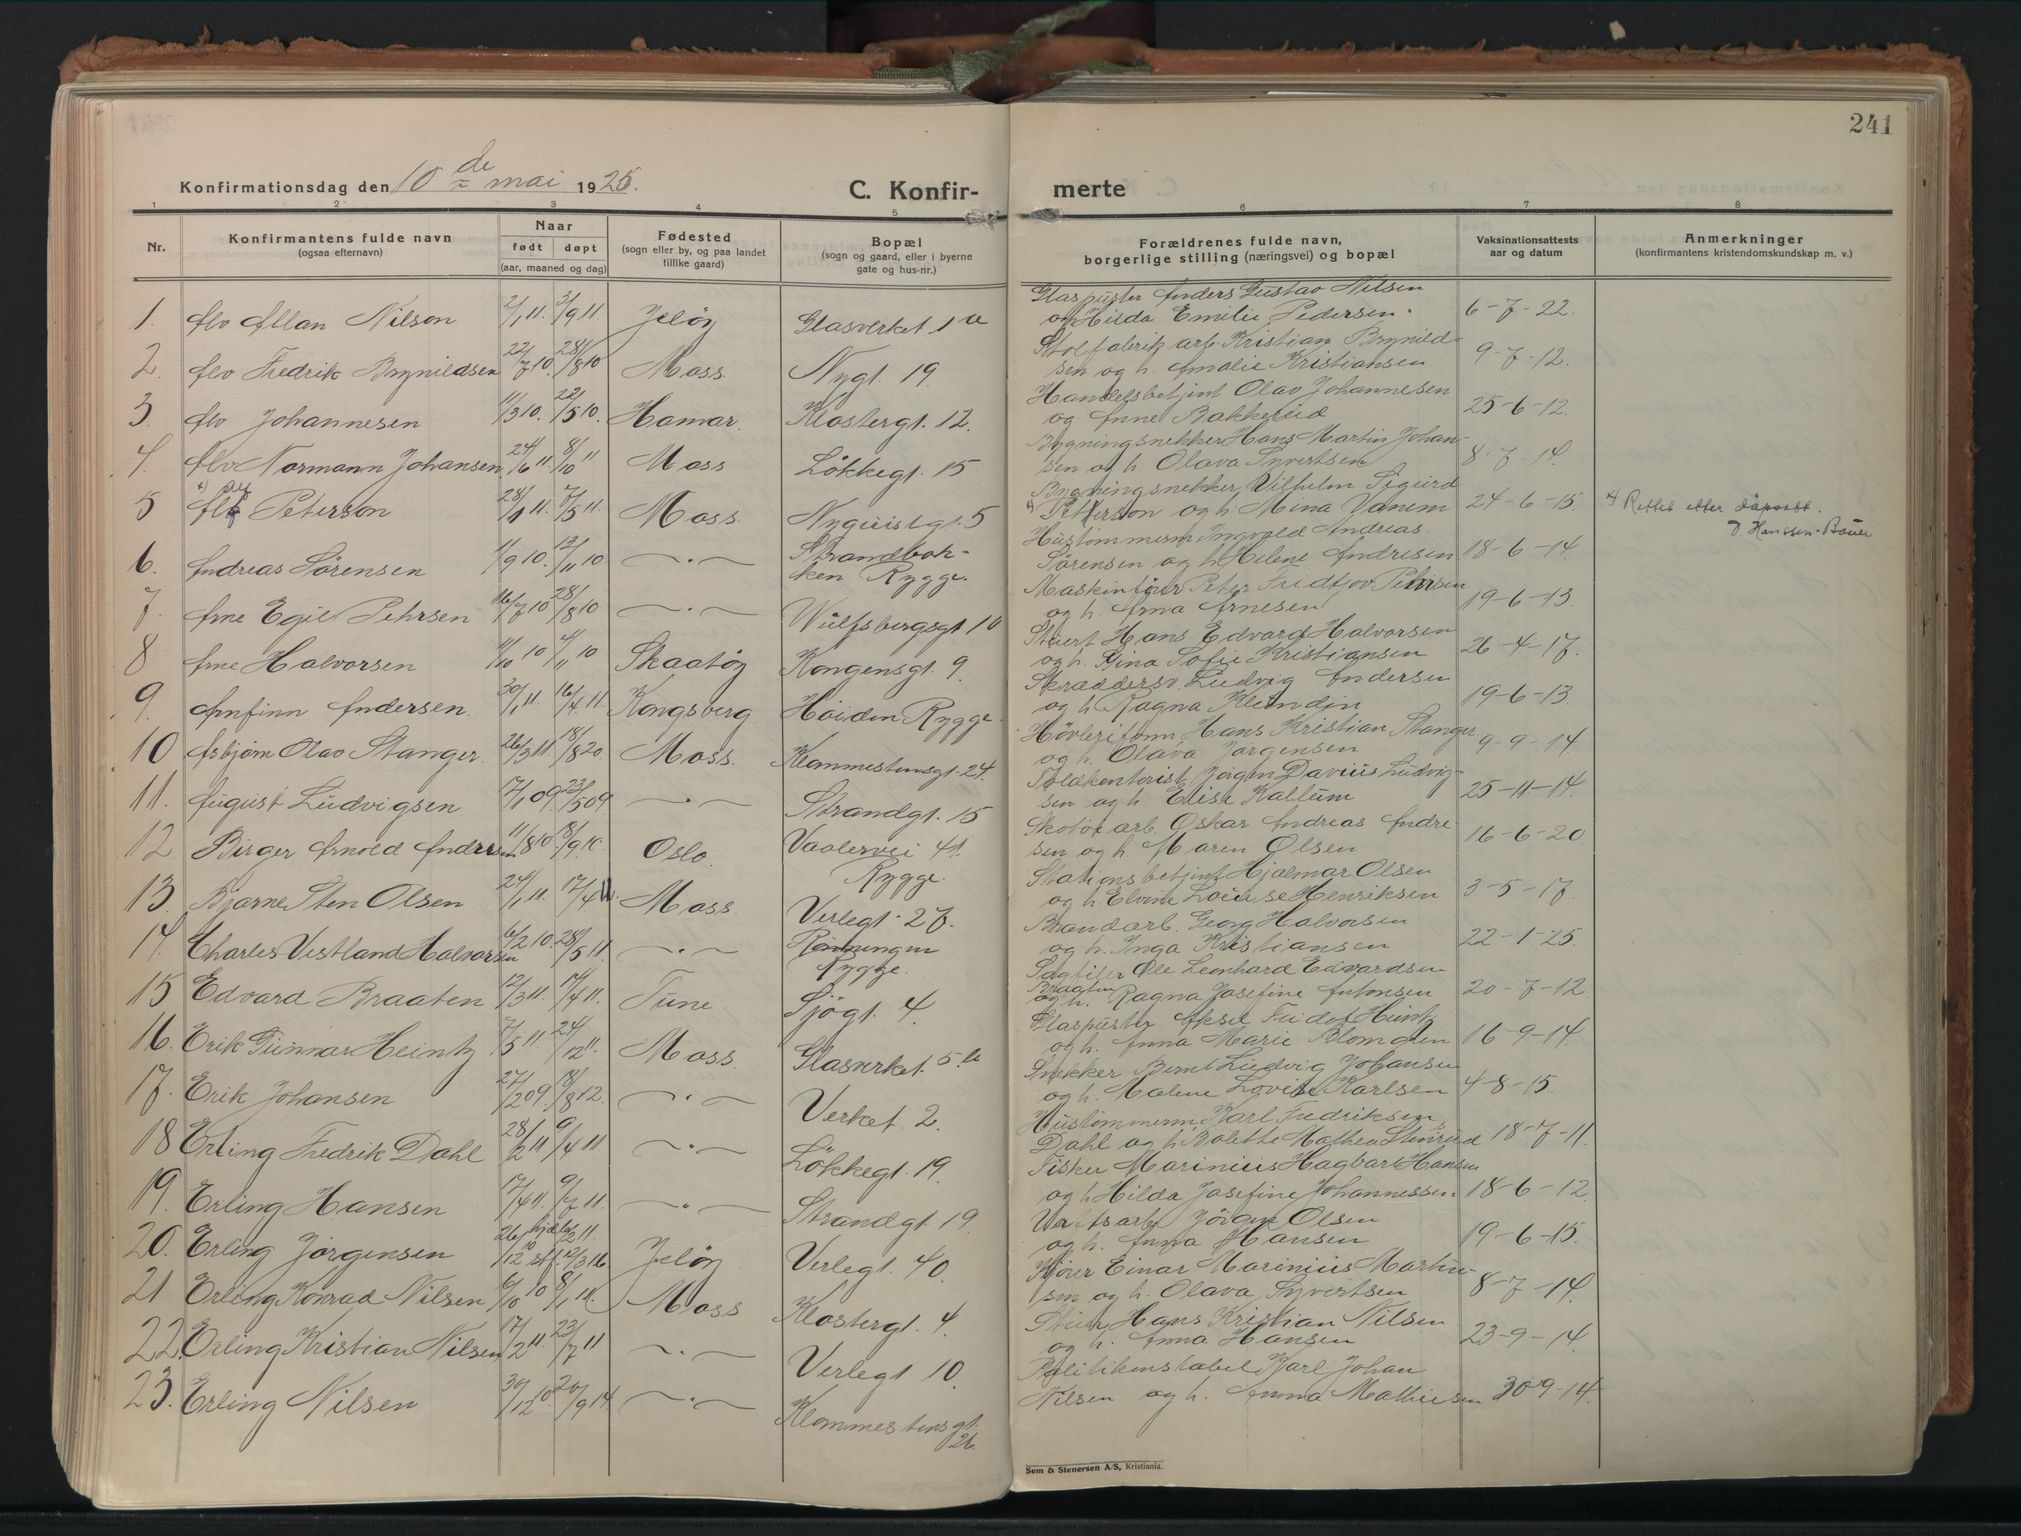 241
Konfirmationsdag den 10de mai 1925.
C. Konfir-
merte
1 2 3 4 5 6 7 8
Nr.
Konfirmantens fulde navn
(ogsaa efternavn)
Naar
født døpt
(aar, maaned og dag)
Fødested
(sogn eller by, og paa landet
tillike gaard)
Bopæl
(sogn og gaard, eller i byerne
gate og hus-nr.)
Forældrenes fulde navn,
borgerlige stilling (næringsvei) og bopæl
Vaksinationsattests
aar og datum
Anmerkninger
(konfirmantens kristendomskundskap m. v.)
1. Alv Allan Nilson 2/1 11. 3/9 11 Jeløy Glasverket 1 a
Glaspuster Anders Gustav Nilsen
og Hilda Emilie Pedersen. 6-7-22
2. Alv Fredrik Brynildsen 22/7 10. 28/8 10 Moss Nygt. 19.
Stolfabrik arb. Kristian Brynild-
sen og h. Amalie Kristiansen 9-7-12.
3. Alv Johannesen 11/3 10. 22/5 10. Hamar. Klostergt. 12.
Handelsbetjent Olav Johannesen
og Anne Bakkerud 25-6-12.
4. Alv Normann Johansen 24/6 11. 8/10 11 Moss Løkkegt. 15
Bygningsnekker Hans Martin Johan-
sen og h. Olava Syvertsen 8-7-14.
5 Peterson 28/1 11. 7/5 11. Moss. Nyquistgt. 5
Bygningsnekker Vilhelm Sigurd
Petterson og h. Mina Vanem 24-6-15. x) Rettet etter dåpsatt.
D. Hanssen-Bauer
6. Andreas Sørensen 1/9 10. 13/11 10 -"- Strandbak-
ken Rygge.
Hustømmerm Ingvald Andreas
Sørensen og h. Helene Andresen 18-6-14.
7. Arne Egil Petersen 16/7 10 28/8 10 -"- Wulfsbergsgt 10
Maskinfører Peter Fridtjov Petersen
og h. Anna Arnesen 19-6-13.
8 Arne Halvorsen 11/10 10 4/11 10 Skaatøy Kongensgt. 9.
Stuert Hans Edvard Halvorsen
og h. Rina Sofie Kristiansen 26-4-17.
9. Arnfinn Andersen. 30/1 11. 16/4 11. Kongsberg Høiden Rygge.
Skræddersv. Ludvig Andersen
og h. Ragna 19-6-13.
10 Asbjørn Olav Stanger. 26/3 11. 18/8 20. Moss. Klommestensgt. 24.
Hans Kristian Stanger
og h. Olava Jørgensen 9-9-14.
11. August Ludvigsen 17/1 09. 23/5 09. -"- Strandgt. 15
Jørgen Davius Ludvig-
sen og h. Elise Kallum 25-11-14.
12. Birger Arnold Andersen 11/8 10. 18/9 10. Oslo. Vaalervei 41.
Rygge.
Skotøi arb. Oskar Andreas Andre-
sen og h. Maren Olsen 16-6-20
13. Bjarne Sten Olsen 24/1 11. 17/4 11. Moss. Verlegt. 27.
Stationsbetjent Hjalmar Olsen
og h. Elvine Louise Henriksen 3-5-17
14. Charles Vestland Halvorsen 6/2 10. 28/5 11. -"- Rønningen
Rygge.
Brandarb. Georg Halvorsen
og h. Inga Kristiansen 22-1-25.
15 Edvard Braaten 12/3 11. 17/4 11. Tune Sjøgt. 4.
Sagfiler Ole Leonhard Edvardsen
Braaten
og h. Ragna Josefine Antonsen 20-7-12
16. Erik Gunnar Heintz 7/5 11. 24/12 11. Moss. Glasverket 5. b
Glaspuster Aksel Fridof Heintz
og h. Anna Marie Blomgren 16-9-14
17. Erik Johansen 27/2 09. 18/8 12. -"- Verket. 2.
Snekker Bernt Ludvig Johansen
og h. Malene Lovise Karlsen 4-8-15.
18 Erling Fredrik Dahl 28/2 11 9/4 11 -"- Løkkegt. 19.
Hustømmerm Karl Fredriksen
Dahl og h. Bolette Mathea Stenrud 18-7-11.
19. Erling Hansen 17/4 11. 9/7 11. -"- Strandgt. 19.
Fisker Marinius Hagbart Hansen
og h. Hilda Josefine Johannessen 18-6-12.
20. Erling Jørgensen 26/12 10 hjd. 6/2 11. stf. 12/3 16 Jeløy Verlegt. 40.
Jørgen Olsen
og h. Anna Hansen 19-6-15.
21. Erling Konrad Nilsen 6/10 10 8/1 11. Moss Klostergt. 4.
Kjører Einar Marinius Martin-
sen og h. Olava Syvertsen 8-7-14.
22. Erling Kristian Nilsen 17/2 11. 23/7 11 -"- Verlegt. 10.
Hans Kristian Nilsen
og h. Anna Hansen 23-9-14.
23. Erling Nilsen 30/12 10. 20/9 14 -"- Klommestensgt.
26.
Politikonstabel Karl Johan
Nilsen og h. Anna Mathiesen 30-9-14.
Sem & Stenersen A/S, Kristiania.